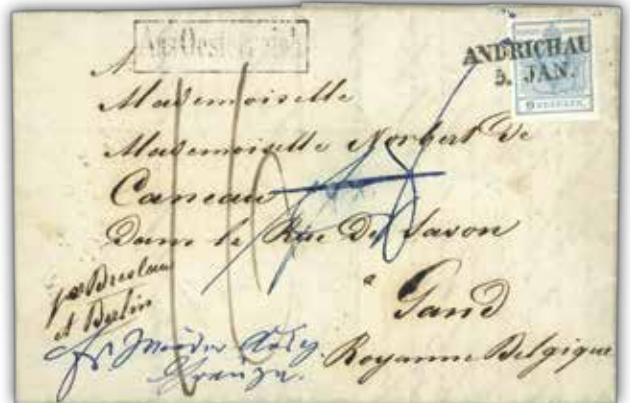 Aus Oesterreich
ANDRICHAU
5. JAN.
9 KREUZER
A
Mademoiselle
Mademoiselle Norbert de
Caneau
Dans la Rue De Savon
a
Gand
Royaume Belgique
per Breslau
et Berlin
16